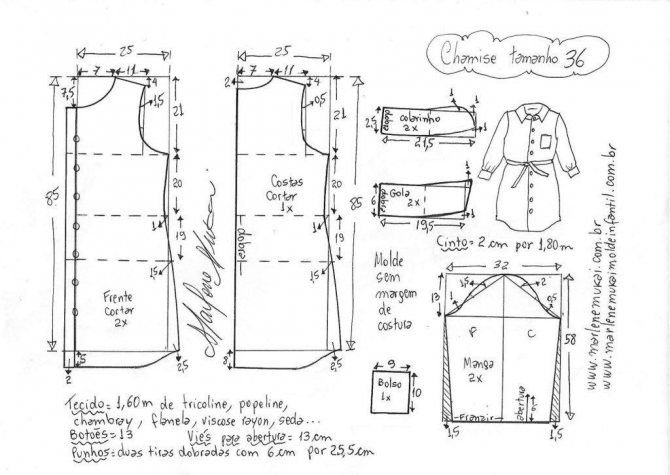 Chamise tamanho 36
25
7
11
7,5
4
1,5
21
85
20
1
19
1,5
Frente
cortar
2x
5
2
2,5
25
2
7
11
4
0,5
21
85
Costas
cortar
1x
20
dobra
1
19
1,5
8
2,5
Marlene Mukai
2,5
dobra
colarinho
2x
1
1
21,5
6
dobra
Gola
2x
1
19,5
Cinto = 2 cm por 1,80m
Molde
sem
margem
de
costura
32
13
1
1,5
2
0,5
P
C
Manga
2x
58
abertura
Franzir
1,5
1,5
9
Bolso
1x
10
www.marlenemukai.com.br
www.marlenemukaimoldeinfantil.com.br
Tecido = 1,60m de tricoline, popeline,
chambray, flanela, viscose rayon, seda...
Botões = 13 Viés para abertura = 13 cm
Punhos = duas tiras dobradas com 6 cm por 25,5 cm